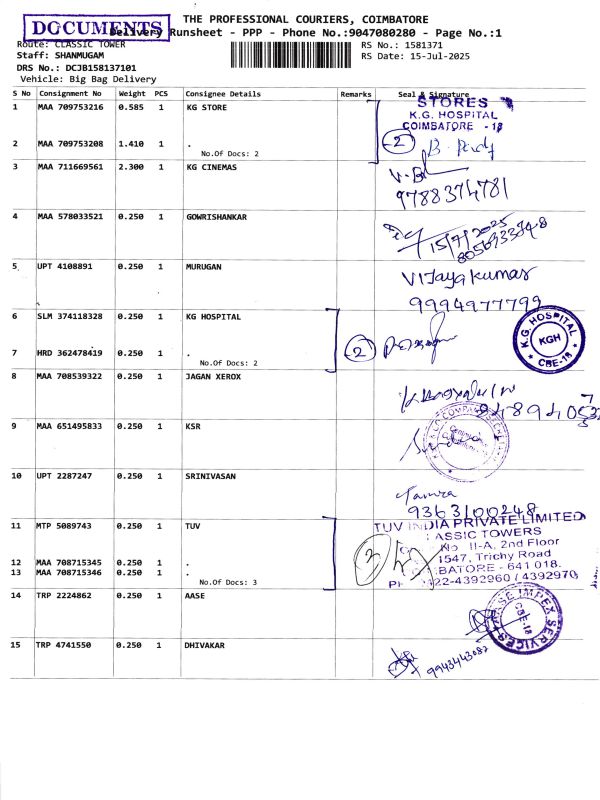 THE PROFESSIONAL COURIERS, COIMBATORE
DOCUMENTS
Delivery Runsheet - PPP - Phone No.:9047080280 - Page No.:1
Route: CLASSIC TOWER
RS No.: 1581371
Staff: SHANMUGAM
RS Date: 15-Jul-2025
DRS No.: DCJB158137101
Vehicle: Big Bag Delivery
S No Consignment No Weight PCS Consignee Details Remarks Seal & Signature
1 MAA 709753216 0.585 1 KG STORE
STORES
K.G. HOSPITAL
COIMBATORE - 18
2 MAA 709753208 1.410 1 .
No.Of Docs: 2
2
3 MAA 711669561 2.300 1 KG CINEMAS
9788374781
4 MAA 578033521 0.250 1 GOWRISHANKAR
15/7/2025
5 UPT 4108891 0.250 1 MURUGAN
Vijayakumar
9994977799
6 SLM 374118328 0.250 1 KG HOSPITAL
K.G. HOSPITAL
KGH
CBE-18
7 HRD 362478419 0.250 1 .
No.Of Docs: 2
2
8 MAA 708539322 0.250 1 JAGAN XEROX
9 MAA 651495833 0.250 1 KSR
10 UPT 2287247 0.250 1 SRINIVASAN
9363100248
11 MTP 5089743 0.250 1 TUV
TUV INDIA PRIVATE LIMITED
ASSIC TOWERS
No II-A, 2nd Floor
1547, Trichy Road
BATORE - 641 018.
422-4392960 / 4392970
3
12 MAA 708715345 0.250 1 .
13 MAA 708715346 0.250 1 .
No.Of Docs: 3
14 TRP 2224862 0.250 1 AASE
AASE IMPEX SERVICES
CBE-18
15 TRP 4741550 0.250 1 DHIVAKAR
9943443087